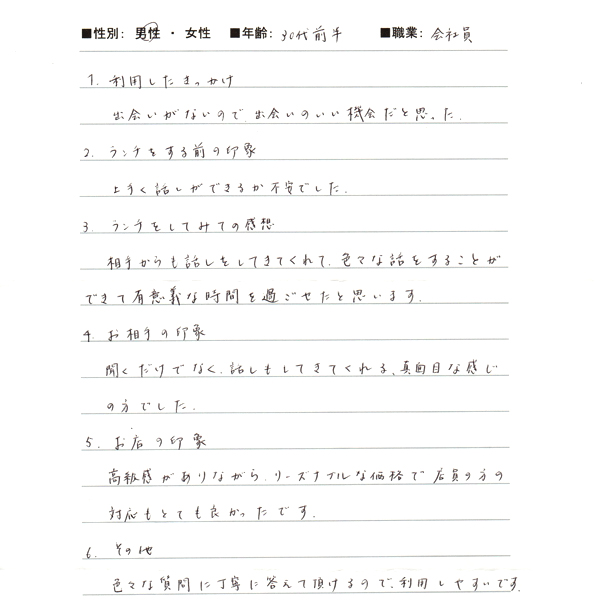 ■性別: 男性 ・ 女性 ■年齢: 30代前半 ■職業: 会社員
1. 利用したきっかけ
出会いがないので、出会いのいい機会だと思った.
2. ランチをする前の印象
上手く話しができるか不安でした.
3. ランチをしてみての感想
相手からも話しをしてきてくれて、色々な話をすることが
できて有意義な時間を過ごせたと思います.
4. お相手の印象
聞くだけでなく、話しもしてきてくれる、真面目な感じ
の方でした.
5. お店の印象
高級感がありながら、リーズナブルな価格で店員の方の
対応もとても良かったです.
6. その他
色々な質問に丁寧に答えて頂けるので、利用しやすいです.